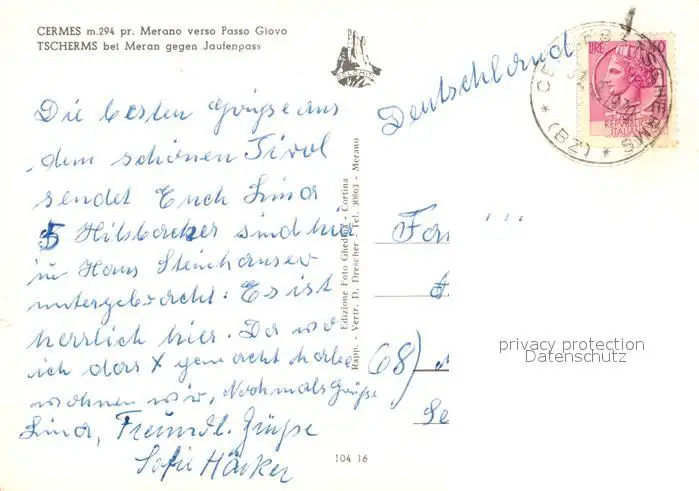 CERMES m.294 pr. Merano verso Passo Giovo
TSCHERMS bei Meran gegen Jaufenpass
DOLOMITI
LIRE
REPUBBLICA
ITALIANA
CERMES * TSCHERMS * (BZ) *
Deutschland
Die besten Grüße aus
dem schönen Tirol
sendet Euch Lina
5 Hilsbacher sind hier
in Haus Steinhauser
untergebracht. Es ist
herrlich hier. Da wo
ich das X gemacht habe
wohnen wir, Nochmals Grüße
Lina, Freundl. Grüße
Sofie Häcker
Edizione Foto Ghedina - Cortina
Rapp. - Vertr. D. Drescher - Tel. 30863 - Merano
Fa
68)
104 16
privacy protection
Datenschutz